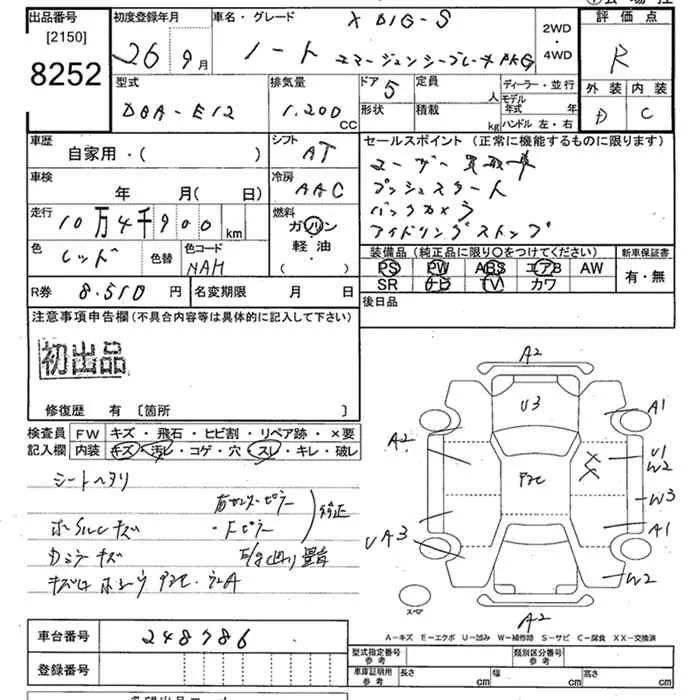 出品番号
[2150]
8252
初度登録年月
26年 9月
車名・グレード
X DIG-S
ノート エマージェンシーブレーキPKG
2WD
・
4WD
評価点
R
外装 内装
D C
型式
DBA-E12
排気量
1.200 CC
ドア 5
形状
定員 人
積載 kg
ディーラー・並行
モデル年式 年
ハンドル 左・右
車歴
自家用・( )
シフト AT
セールスポイント (正常に機能するものに限ります)
ユーザー買取車
プッシュスタート
バックカメラ
アイドリングストップ
車検
年 月( 日)
冷房 AAC
走行
10万4千900km
燃料
ガソリン
軽油・
( )
色 レッド 色替
色コード
NAH
装備品 (純正品に限り○をつけてください)
PS PW ABS エアB AW
SR ナビ TV カワ
新車保証書
有・無
R券 8.510円
名変期限 月 日
後日品
注意事項申告欄 (不具合内容等は具体的に記入して下さい)
初出品
修復歴 有 [箇所 ]
検査員 FW キズ・飛石・ヒビ割・リペア跡・×要
記入欄 内装 キズ・汚レ・コゲ・穴・スレ・キレ・破レ
シートヘタリ
右センターピラー
・Fピラー
修正
A2
U3
A1
A2
U1
W2
P2C
W3
UA3
A1
W2
スペア
A2
A-キズ E-エクボ U-凹み W-補修跡 S-サビ C-腐食 XX-交換済
車台番号 248786
登録番号
型式指定番号
参考
類別区分番号
参考
車庫証明用
参考
長さ cm
幅 cm
高さ cm